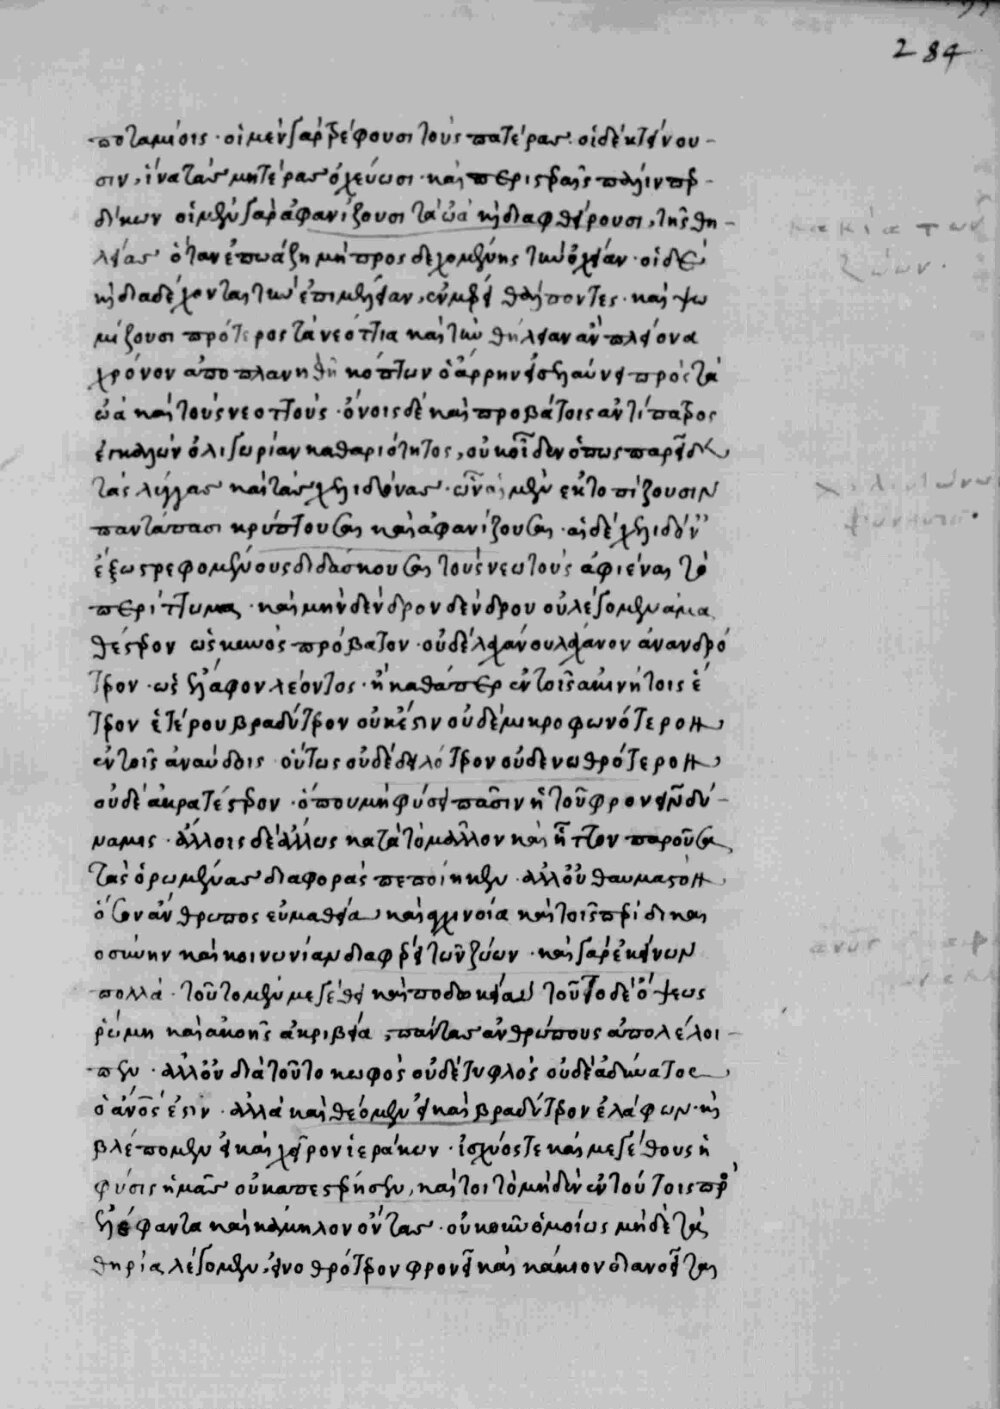 284
ποταμίοις · οἱ μὲν γὰρ τρέφουσι τοὺς πατέρας · οἱ δὲ κτείνου-
σιν, ἵνα τὰς μητέρας ὀχεύωσι · καὶ περιστεραῖς πλὴν περ-
δίκων οἱ μὲν γὰρ ἀφανίζουσι τὰ ὠὰ καὶ διαφθείρουσι, τῆς θη-
λείας ὅταν ἐπωάζῃ μὴ προσδεχομένης τὴν ὀχείαν · οἱ δὲ
καὶ διαδέχονται τὴν ἐπιμέλειαν, ἐν μέρει θάλποντες · καὶ ψω
μίζουσι πρότερος τὰ νεόττια καὶ τὴν θήλειαν ἂν πλείονα
χρόνον ἀποπλανηθῇ κόπτων ὁ ἄρρην εἰσελαύνει πρὸς τὰ
ὠὰ καὶ τοὺς νεοττούς · ὄνοις δὲ καὶ προβάτοις ἀντίπατρος
ἐγκαλῶν ὀλιγωρίαν καθαριότητος, οὐκ οἶδεν ὅπως παρεῖδε
τὰς λύγγας καὶ τὰς χελιδόνας · ὧν αἱ μὲν ἐκτοπίζουσιν
παντάπασι κρύπτουσαι καὶ ἀφανίζουσαι · αἱ δὲ χελιδόν
ἔξω στρεφομένους διδάσκουσαι τοὺς νεωτοὺς ἀφιέναι τὸ
περίττωμα · καὶ μὴν δένδρον δένδρου οὐ λέγομεν ἀμα
θέστερον ὡς κυνὸς πρόβατον · οὐδὲ λάχανον λαχάνου ἀνανδρό
τερον · ὡς ἔλαφον λέοντος · ἢ καθάπερ ἐν τοῖς ἀκινήτοις ἕ
τερον ἑτέρου βραδύτερον οὐκ ἔστιν οὐδὲ μικροφωνότερον
ἐν τοῖς ἀναύδοις οὕτως οὐδὲ δειλότερον οὐδὲ νωθρότερον
οὐδὲ ἀκρατέστερον · ὅπου μὴ φύσει πᾶσιν ἡ τοῦ φρονεῖν δύ-
ναμις · ἄλλοις δὲ ἄλλως κατὰ τὸ μᾶλλον καὶ ἧττον παροῦσα
τὰς ὁρωμένας διαφορὰς πεποίηκεν · ἀλλ' οὐ θαυμαστὸν
ὅσον ἄνθρωπος εὐμαθείᾳ καὶ ἀγχινοίᾳ καὶ τοῖς περὶ δικαι
οσύνην καὶ κοινωνίαν διαφέρει τῶν ζῴων · καὶ γὰρ ἐκείνων
πολλὰ · τοῦτο μὲν μεγέθει καὶ ποδωκείᾳ τοῦτο δὲ ὄψεως
ῥώμῃ καὶ ἀκοῆς ἀκριβείᾳ, πάντας ἀνθρώπους ἀπολέλοι-
πεν · ἀλλ' οὐ διὰ τοῦτο κωφὸς οὐδὲ τυφλὸς οὐδὲ ἀδύνατος
ὁ ἄνος ἐστιν · ἀλλὰ καὶ θέομεν εἰ καὶ βραδύτερον ἐλάφων · καὶ
βλέπομεν εἰ καὶ χεῖρον ἱεράκων · ἰσχύος τε καὶ μεγέθους ἡ
φύσις ἡμᾶς οὐκ ἀπεστέρησεν, καί τοι τὸ μηδὲν ἐν τούτοις πρὸς
ἐλέφαντα καὶ κάμηλον ὄντας · οὐκοῦν ὁμοίως μηδὲ τὰ
θηρία λέγομεν, εἰ νωθρότερον φρονεῖ καὶ κάκιον διανοεῖται
κακία των
ζώων.